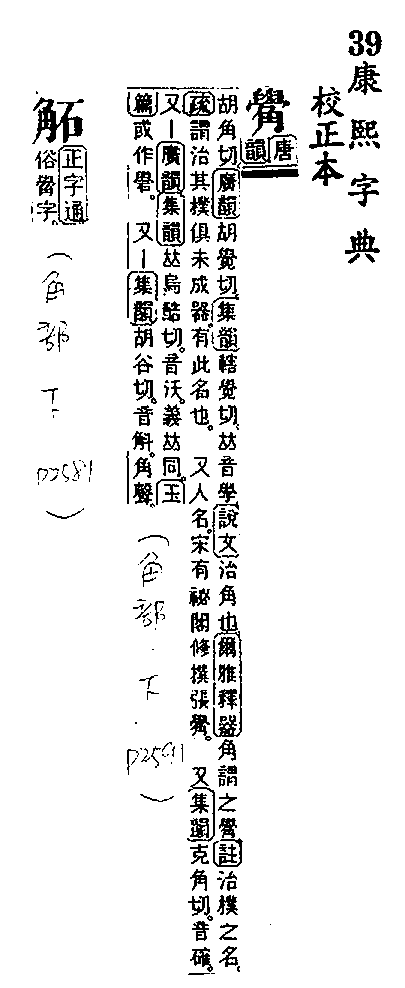 39康熙字典
校正本
觷
唐韻
胡角切。廣韻胡覺切。集韻轄覺切。𠀤音學說文治角也爾雅釋器角謂之觷註治樸之名。
疏謂治其樸俱未成器。有此名也。 又人名。宋有祕閣修撰張觷。 又集韻克角切。音確。
又一廣韻集韻𠀤烏酷切。音沃。義𠀤同。玉
篇或作。 又一集韻胡谷切。音斛。角聲。
(角部.下.P2591)
正字通
俗觷字。
(角部下P2581)